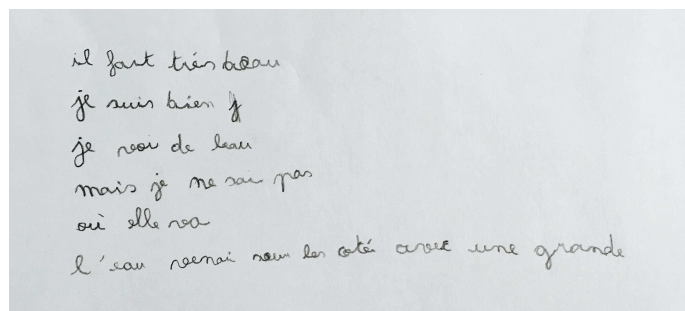 il fait trés beau
je suis bien
je voi de leau
mais je ne sai pas
où elle va
l'eau venai sur les coté avec une grande